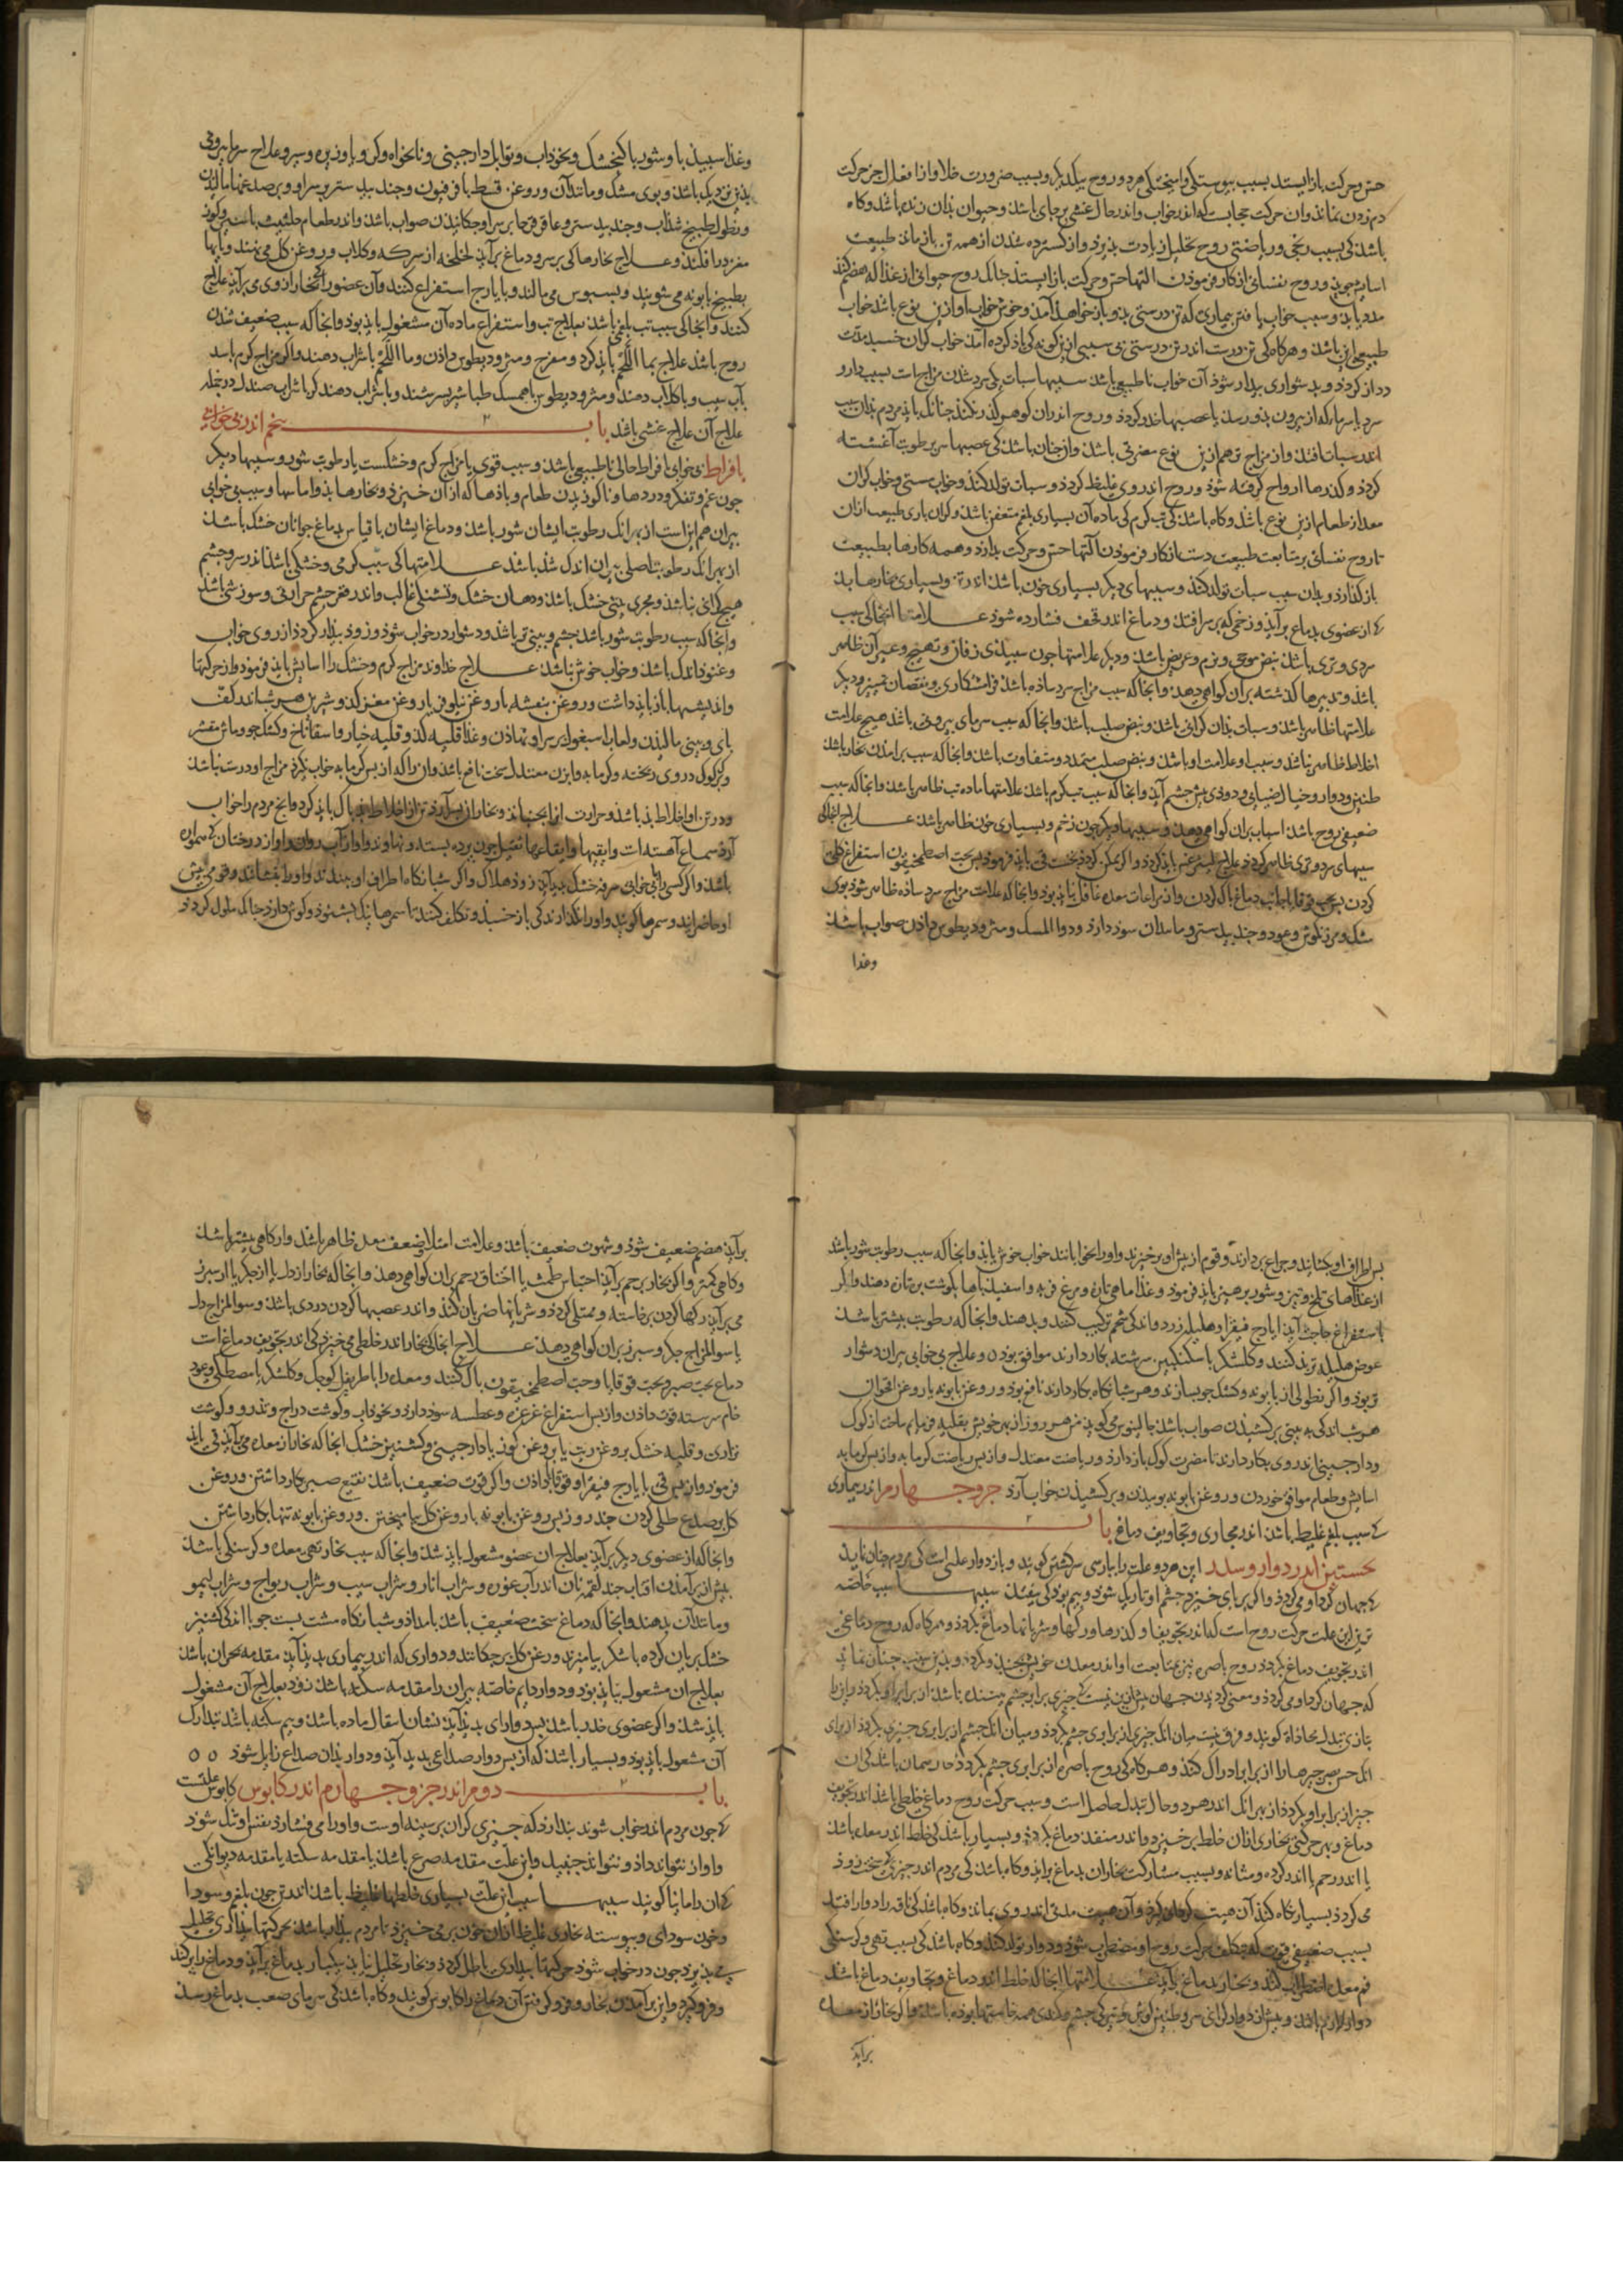 حس و حرکت باز ایستد بسبب پیوستگی و آمیختگی هر دو روح بیکدیکر و بسبب ضرورت خلا و از افعال جز حرکت
دم زدن نماند و آن حرکت حجابست که اندر خواب و اندر حال غشی بر جای باشد و حیوان بذان زنده باشد و کاه
باشد کی بسبب رنجی و ریاضتی روح تحلیل زیادت پذیرد و از کسترده شدن اندر همه تن باز ماند طبیعت
آسایش جوید و روح نفسانی از کار فرموذن آلتها حس و حرکت باز ایستد جنانک روح حیوانی از غذا که هضم کند
مدد یابد و سبب خواب یافتن بیماری که تن درستی بدو باز خواهد آمد و خوش خواب او ازین نوع باشد خواب
طبیعی این باشد و هرکاه کی تن درست اندر تن درستی بی سببی ازین کونه کی یاد کرده آمد خواب کران خسبد و مدت
دراز کردد و بدشواری بیدار شوذ آن خواب ناطبیعی باشد سببها سبات یکی سرد شدن مزاجست بسبب دارو
سرد یا سرما که از بیرون بدو رسد یا عصبها خدر کردد و روح اندران کوهر کذر نکند جنانک باید مردم بذان سبب
اندر سبات افتد و از مزاج تر هم ازین نوع مضرتی باشد و از جنان باشد کی عصبها سر برطوبت آغشته
کردد و کذرها ارواح کرفته شوذ و روح اندر وی غلیظ کردد و سبات تولد کند و خواب سستی و خواب کران
بعد از طعام ازین نوع باشد و کاه باشد کی تب کرم کی ماده آن بسیاری بلغم متعفن باشد و کران باری طبیعت از آن
تا روح نفسانی بمتابعت طبیعت دست از کار فرموذن آلتها حس و حرکت بدارد و همه کارها بطبیعت
باز کذارد و بذان سبب سبات تولد کند و سببهای دیکر بسیاری خون باشد اندر تن و بسیاری بخارها بد
کی از عضوی بدماغ برآید و زخمی که بر سر افتد و دماغ اندر قحف فشارده شوذ علامتها آنجا کی سبب
سردی و تری باشد نبض موجی و نرم و عریض باشد و دیکر علامتها جون سبیدی زفان و تهبج و غیر آن ظاهر
باشد و تدبیرها کذشته بران کواهی دهد و آنجا که سبب مزاج سرد ساذه باشد فراموشکاری و نقصان تمییز و دیکر
علامتها ظاهر باشد و سبات بذان کرانی باشد و نبض صلب باشد و آنجا که سبب سرمای بیرونی باشد هیچ علامت
اخلاط ظاهر نباشد و سبب او علامت او باشد و نبض صلب متمدد و متفاوت باشد و آنجا که سبب برآمدن بخار باشد
طنین و دوار و خیال ضیایی و دودی پیش جشم آید و آنجا که سبب تب کرم باشد علامتها ماده تب ظاهر باشد و آنجا که سبب
ضعیفی روح باشد اسباب بران کواهی دهد و سببها دیکر جون زخم و بسیاری خون ظاهر باشد علاج آنجا کی
سببهای سرد و تری ظاهر کردد علاج لیثرغس باید کرد و اکر ممکن کردد نخست قی باید فرمود بس بحب اصطمخیقون استفراغ کلی
کردن بس بحب قوقایا و ایارج دماغ باک کردن و از مراعات معده غافل نباید بود و آنجا که علامت مزاج سرد ساذه ظاهر شوذ بوی
مشک و مرزنکوش و عود و جند بیدستر و مانند آن سود دارد و دواء المسک و مثرودیطوس دادن صواب باشد
وغذا
وغذا سبیذ با و شوربا کنجشک و نخوداب و توابل دارجینی و نانخواه و کرویا و زیره و سیر و علاج سرما بیرونی
بدین نزدیک باشد و بوی مشک و مانند آن و روغن قسط با فرفیون و جند بیدستر بر سر او و بر صدغها مالیدن
و نطول طبیخ شذاب و جند بیدستر و عاقرقرحا بر سر او جکانیدن صواب باشد و اندر طعام حلتیت باشد و کوز
مغز در افکند و علاج بخارها کی بر سر و دماغ برآید لخلخه از سرکه و کلاب و روغن کل می نهند و پایها
بطبیخ بابونه می شویند و بسبوس می مالند و بایارج استفراغ کنند و آن عضو را کی بخار از وی می برآید علاج
کنند و آنجا کی سبب تب بلغمی باشد بعلاج تب و استفراغ ماده آن مشغول باید بود و آنجا که سبب ضعیف شدن
روح باشد علاج بماء اللحم باید کرد و مفرح و مثرودیطوس دادن و ماء اللحم با شراب دهند و اکر مزاج کرم باشد
بآب سیب و با کلاب دهند و مثرودیطوس با همسک طباشیر بسرشند و با شراب دهند کی با شراب صندل در جمله
علاج آن علاج غشی باشد باب بنجم اندر بی خوابی
بافراط بی خوابی افراط حالی ناطبیعی باشد و سبب قوی یا مزاج کرم و خشکست یا رطوبت شور و سببها دیکر
جون غم و تفکر و دردها و ناکواریدن طعام و باذها که از آن خیزد و بخارها بد و اماسها و سبب بی خوابی
بیران هم این است از بهر آنک رطوبت ایشان شور باشد و دماغ ایشان با قیاس بدماغ جوانان خشک باشد
از بهر آنک رطوبت اصلی بیران اندک شده باشد علامتها کی سبب کرمی و خشکی باشد اندر سر و جشم
هیچ کرانی نباشد و مجری بینی خشک باشد و دهان خشک و تشنکی غالب و اندر قعر جشم حرارتی و سوزشی باشد
و آنجا که سبب رطوبت شور باشد جشم و بینی تر باشد و دشوار در خواب شوذ و زود بیدار کردد از روی خواب
و غنودن اندک باشد و خواب خوش نباشد علاج خداوند مزاج کرم و خشک را آسایش باید فرمود و از حرکتها
و اندیشها باز باید داشت و روغن بنفشه یا روغن نیلوفر یا روغن مغز کدو شیرین هر شب اندر کف
بای و بینی مالیدن و لعاب اسبغول بر سر او نهاذن و غذا قلیه کدو و قلیه خیار و اسفاناخ و کشک جو و ماش مقشر
و برک کوک در وی ریخته و کرمابه و آبزن معتدل سخت نافع باشد و آنرا که از بس کرمابه خواب نکیرد مزاج او درست نباشد
و در تن او اخلاط بد باشد و حرارت آنرا بجنباند و بخار از بس آرد تن از اخلاط بد باک باید کرد و آنج مردم را خواب
آرد سماع آهسته است و ایقاعها ثقیل جون برده بسته و نهاوند و آواز آب روان و آواز درختان کی هموار
باشد و اکر کسی را بی خوابی صرفه خشک بدید آید زود هلاک و اکر شبانکاه اطراف او ببندند و او را بنشانند و قومی بیش
او حاضر آیند و سمرها کویند و او را نکذارند کی باز خسبد و تکلف کنند تا سمرها نیک بشنود و کوش دارد جنانک ملول کردد
بس اطراف او بکشایند و جراغ بردارند و قوم از بیش او برخیزند و او را بخوابانند خواب خوش یابد و آنجا که سبب رطوبت شور باشد
از غذاهای تلخ و تیز و شور برهیز باید فرمود و غذا ماهی تازه و مرغ فربه و اسفیدباها بکوشت بره تازه دهند و اکر
باستفراغ حاجت آید ایارج فیقرا و هلیله زرد و اندکی شحم ترکیب کنند و بدهند و آنجا که رطوبت بیشتر باشد
عوض هلیله تربد کنند و کلشکر با سکنکبین سرشته بکار دارند موافق بود و علاج بی خوابی بیران دشوار
تر بود و اکر نطولی از بابونه و کشک جو بسازند و هر شبانکاه بکار دارند نافع بود و روغن بابونه یا روغن اقحوان
هر شب اندکی به بینی بر کشیدن صواب باشد جالینوس می کوید من هر روز از بهر خویش بقلیه فرمایم ساخت از کوک
و دارجینی اندر وی بکار دارند تا مضرت کوک باز دارد و ریاضت معتدل و از بس ریاضت کرمابه و از بس کرمابه
آسایش و طعام موافق خوردن و روغن بابونه بوییدن و بر کشیدن خواب آرد جزو جهارم اندر بیماری
کی سبب بلغم غلیظ باشد اندر مجاری و تجاویف دماغ باب
نخستین اندر دوار و سدد این هر دو علت را ببارسی سرکشتن کویند و باز دوار علتی است کی مردم جنان نماید
کی جهان کرد او می کردد و اکر بر بای خیزد جشم او تاریک شود و بیم بود کی بیفتد سببها سبب خاصه
ترین این علت حرکت روح است که اندر تجویفها و کذرها و رکها و شریانها دماغ بکردد و هر کاه که روح دماغی
اندر تجویف دماغ بکردد روح باصره نیز بمتابعت او اندر معدن خویش بجنبد و بکردد و بدین سبب جنان نماید
که جهان کرد او می کردد و معنی کردیدن جهان بیش ازین نیست کی جیزی برابر جشم بیننده باشد از برابر او بکردد و این را
بتازی تبدل محاذاة کویند و فرق نیست میان آنک جیزی از برابری جشم بکردد و میان آنک جشم از برابری جیزی بکردد از برای
آنک حس بصر جیزها را از برابر ادراک کند و هر کاه کی روح باصره از برابری جشم بکردد همان باشد کی آن
جیز از برابر او بکردد از بهر آنک اندر هر دو حال تبدل حاصل است و سبب حرکت روح دماغی خلطی باشد اندر تجویف
دماغ و بهر حرکتی بخاری از آن خلط بر خیزد و اندر منفذ دماغ بکردد و بسیار باشد کی خلط اندر معده باشد
یا اندر رحم یا اندر کرده و مثانه و بسبب مشارکت بخار آن بدماغ برآید و کاه باشد کی مردم اندر جیزی کی سخت زود
می کردد بسیار نکاه کند آن هیئت کردان کیرد و آن هیئت مدتی اندر وی بماند و کاه باشد کی ناقه را دوار افتد
بسبب ضعیفی قوت که بتکلف حرکت روح او مضطرب شود و دوار تولد کند و کاه باشد کی بسبب تهی و کرسنکی
فم معده اضطراب کند و بخار بدماغ برآید علامتها آنجا که خلط اندر دماغ و تجاویف دماغ باشد
دوار لازم باشد و بیش از دوار کرانی سر و طنین کوش و تیرکی جشم و کندی همه حاستها بوده باشد و اکر بخار از معده
برآید
برآید هضم ضعیف شوذ و شهوت ضعیف باشد و علامت امتلا و ضعف معده ظاهر باشد و ار کاهی بیشتر باشد
و کاهی کمتر و اکر بخار برحم برآید احتباس طمث یا اختناق رحم بران کواهی دهد و آنجا که بخار از دل یا از جکر یا از سبرز
می برآید رکها کردن برخاسته و ممتلی کردد و شریانها ضربان کند و اندر عصبها کردن دردی باشد و سوء المزاج دل
یا سوء المزاج جکر و سبرز بران کواهی دهد علاج آنجا کی بخار اندر خلطی می خیزد کی اندر تجویف دماغ است
دماغ بحب صبر و بحب قوقایا و حب اصطمخیقون باک کنند و معده را باطریفل کوجک و کلشکر با مصطکی و عود
خام سرشته قوت دادن و از بس استفراغ غرغره و عطسه سود دارد و نخوداب و کوشت دراج و تذرو و کوشت
نزاری و قلیه خشک بروغن زیت یا بروغن کوز با دارجینی و کشنیز خشک آنجا که بخار از معده می برآید قی باید
فرمود و از بس قی بایارج فیقرا و قوقایا دادن و اکر قوت ضعیف باشد نقیع صبر بکار داشتن و روغن
کل بر صدغ طلی کردن جند روز بس روغن بابونه با روغن کل بیامیختن و روغن بابونه تنها بکار داشتن
و آنجا که از عضوی دیکر برآید بعلاج آن عضو مشغول باید شد و آنجا که سبب بخار تهی معده و کرسنکی باشد
بیش از برآمدن آفتاب جند لقمه نان اندر آب غوره و شراب انار و شراب سیب و شراب ریواج و شراب لیمو
و مانند آن بدهند و آنجا که دماغ سخت ضعیف باشد بامداد و شبانکاه مشت بست جو با اندکی کشنیز
خشک بریان کرده با شکر بیامیزند و روغن کل بر جکانند و دواری که اندر بیماری بدید آید مقدمه بحران باشد
بعلاج آن مشغول نباید بود و دوار دایم خاصه بیران را مقدمه سکته باشد زود بعلاج آن مشغول
باید شد و اکر عضوی خدر باشد بس دواری بدید آید نشان انتقال ماده باشد و بیم سکته باشد بتدارک
آن مشغول باید بود و بسیار باشد که از بس دوار صداعی بدید آید و دوار بذان صداع زایل شود
باب دوم اندر جزو جهارم اندر کابوس کابوس علتیست
کی جون مردم اندر خواب شوند بندارد که جیزی کران بر سینه اوست و او را می فشارد و نفس او تنک شود
و آواز نتواند داد و نتواند جنبید و این علت مقدمه صرع باشد یا مقدمه سکته یا مقدمه دیوانکی
کی آن را مانیا کویند سببها سبب این علت بسیاری خلطها غلیظ باشد اندر تن جون بلغم و سودا
و خون سودای و بیوسته بخاری غلیظ از آن خون بر می خیزد تا مردم بیدار باشد بحرکتها بیداری تحلیل
می بذیرد جون در خواب شود حرکتها بیداری باطل کردد و بخار تحلیل نیابد بیکبار بدماغ برآید و دماغ را بر کند
و فرو کیرد و این برآمدن بخار و فرو کرفتن آن دماغ را کابوس کویند و کاه باشد کی سرمای صعب بدماغ رسد